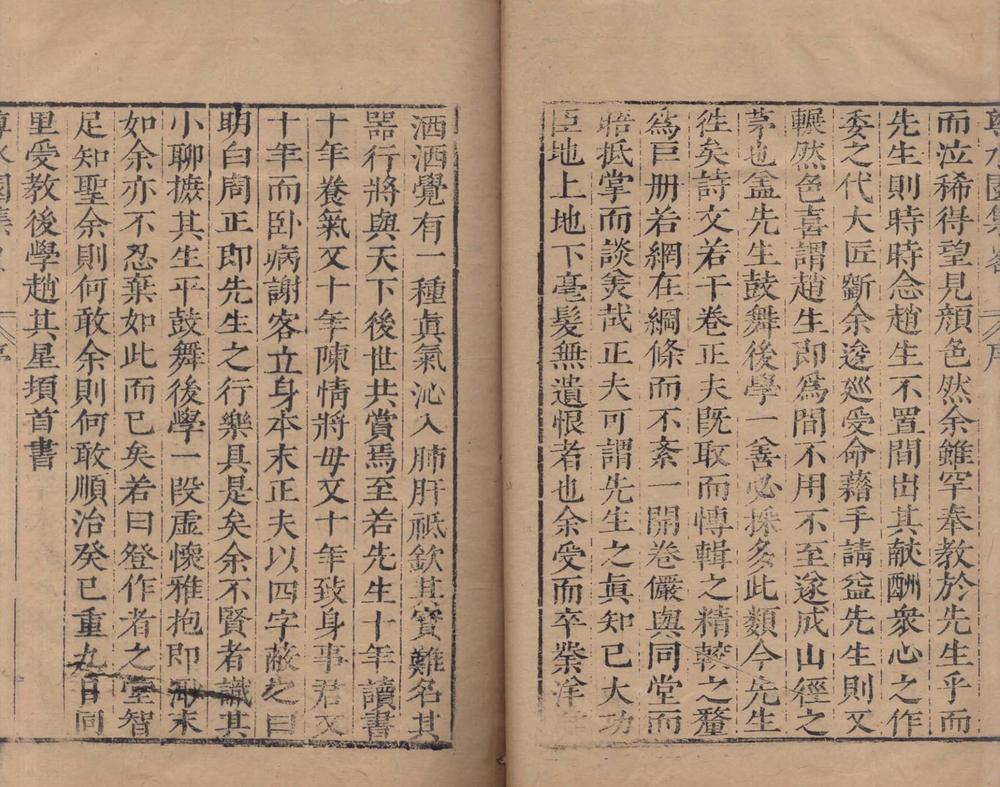 而泣稀得望見顏色然余雖罕奉教於先生乎而
先生則時時念趙生不置間出其献酬衆心之作
委之代大匠斵余逡廵受命藉手請益先生則又
輾然色喜謂趙生即爲間不用不至遂成山徑之
茅也盖先生鼓舞後學一善必採多此類今先生
徃矣詩文若干卷正夫既取而慱輯之精較之釐
爲巨册若網在綱條而不紊一開卷儼與同堂而
晤抵掌而談矣㢤正夫可謂先生之眞知已大功
臣地上地下毫髮無遺恨者也余受而卒業洋
洒洒覺有一種眞氣沁入肺肝祗欽其寳難名其
噐行將與天下後世共賞焉至若先生十年讀書
十年養氣又十年陳情將母又十年致身事君又
十年而卧病謝客立身本末正夫以四字蔽之曰
明白周正即先生之行樂具是矣余不賢者識其
小聊摭其生平鼓舞後學一段虛懷雅抱即微末
如余亦不忍棄如此而已矣若曰登作者之堂智
足知聖余則何敢余則何敢順治癸巳重九日同
里受教後學趙其星頊首書